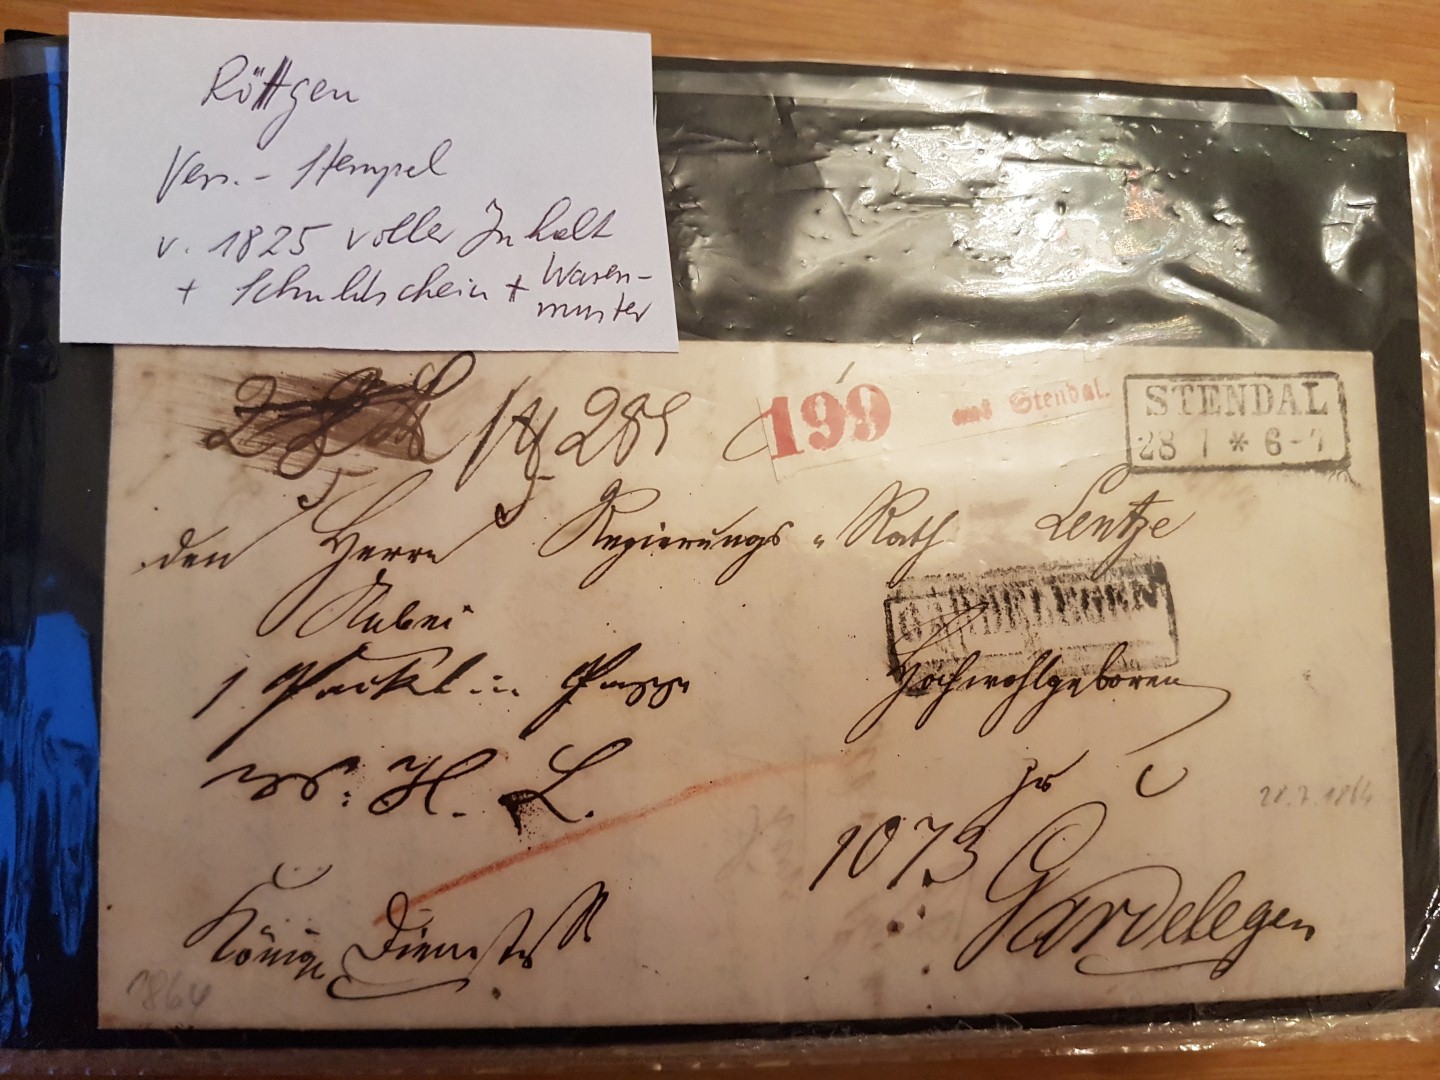 Röttgen
Vers.-Stempel
v. 1825 voller Inhalt
+ Schuldschein + Waren-
muster
199
aus Stendal.
STENDAL
28 7 * 6-7
den Herrn Regierungs-Rath Lentze
GARDELEGEN
Anbei
Hochwohlgeboren
1 Packet in
H. L.
zu
28.7.1864
1073
Gardelegen
Königl Diensts
1864